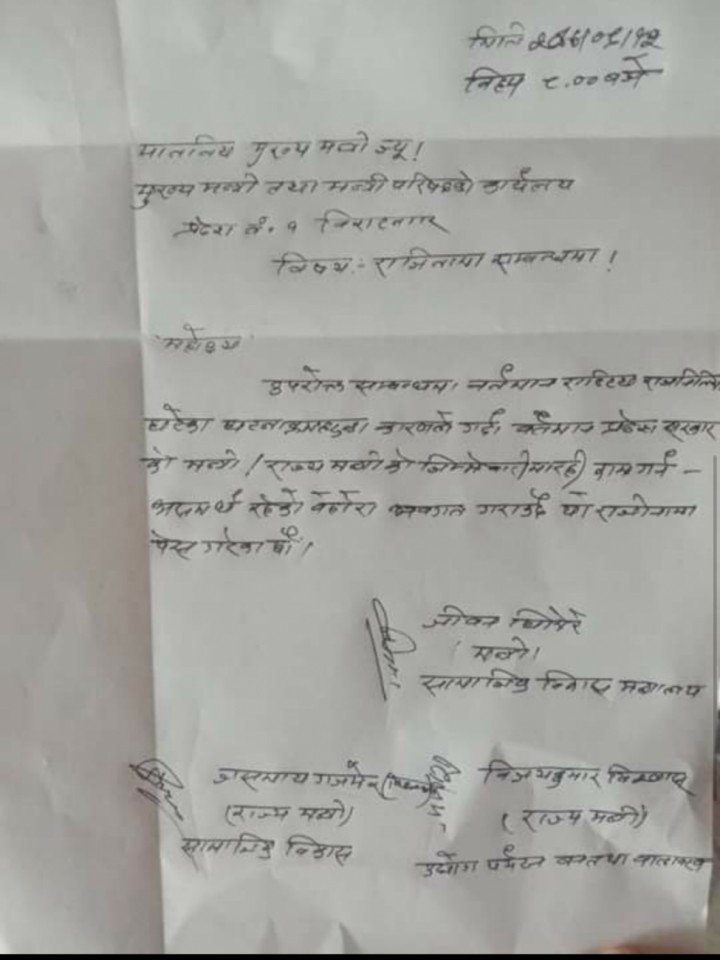 मिति २०७७/०९/१२
बिहान ८.०० बजे
माननिय मुख्य मन्त्री ज्यू!
मुख्य मन्त्री तथा मन्त्री परिषदको कार्यलय
प्रदेश नं. १ विराटनगर
विषय:- राजिनामा सम्बन्धमा!
महोदय
उपरोक्त सम्बन्धमा, वर्तमान राष्ट्रिय राजनितिमा
घटेका घटनाक्रमहरुका कारणले गर्दा वर्तमान प्रदेश सरकार
को मन्त्री / राज्य मन्त्री को जिम्मेवारीमा रही काम गर्न -
असमर्थ रहेको व्यहोरा अवगत गराउँदै यो राजीनामा
पेस गरेका छौं।
जीवन घिमिरे
मन्त्री।
सामाजिक विकास मन्त्रालय
जसमाया गजमेर
विजयकुमार विश्वास
(राज्य मन्त्री)
(राज्य मन्त्री)
सामाजिक विकास
उद्योग पर्यटन वन तथा वातावरण